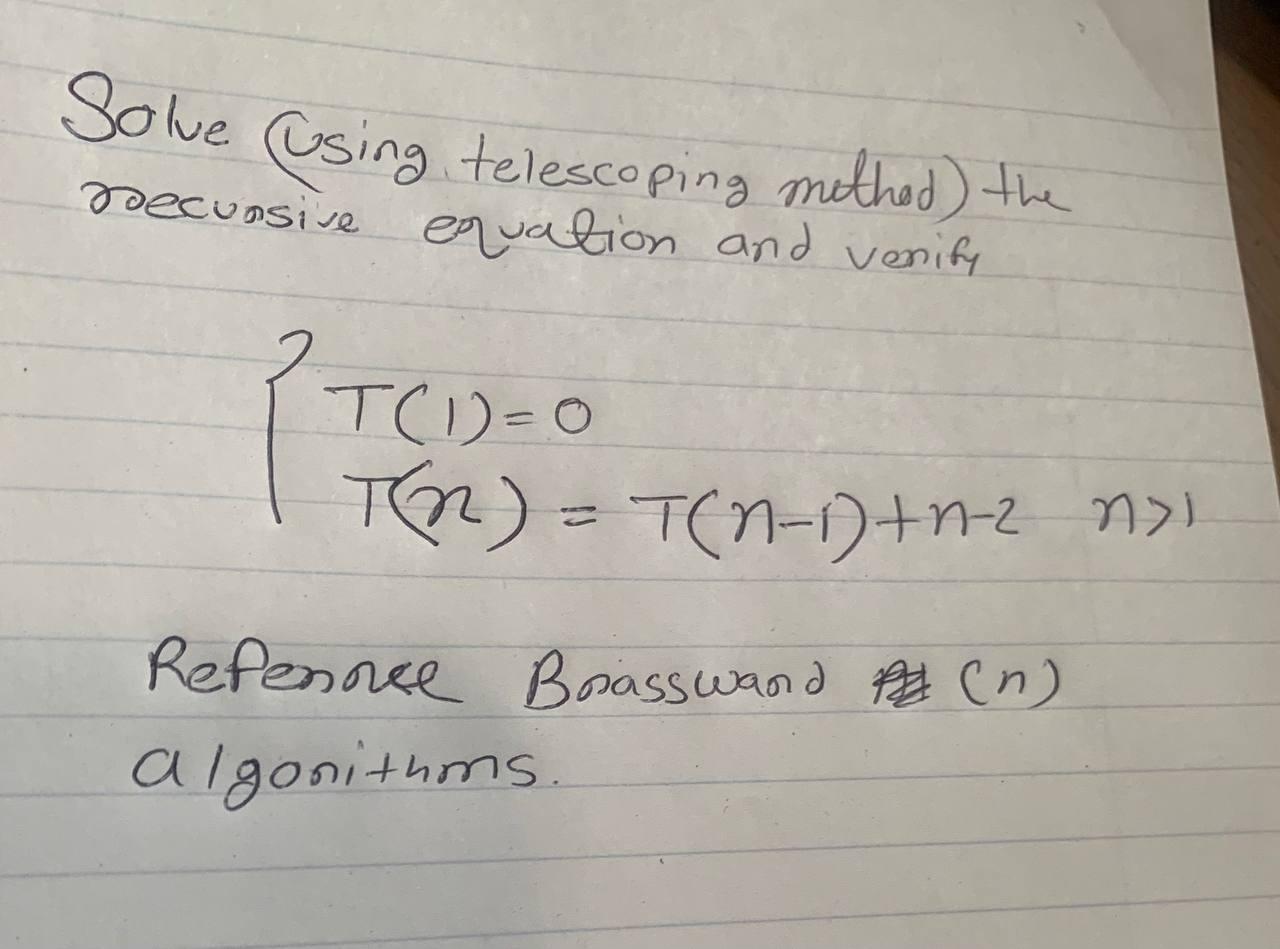 Solve (using telescoping method) the
recursive equation and verify
T(1)=0
T(n) = T(n-1)+n-2 n>1
Refernce Brassward (n)
algorithms.